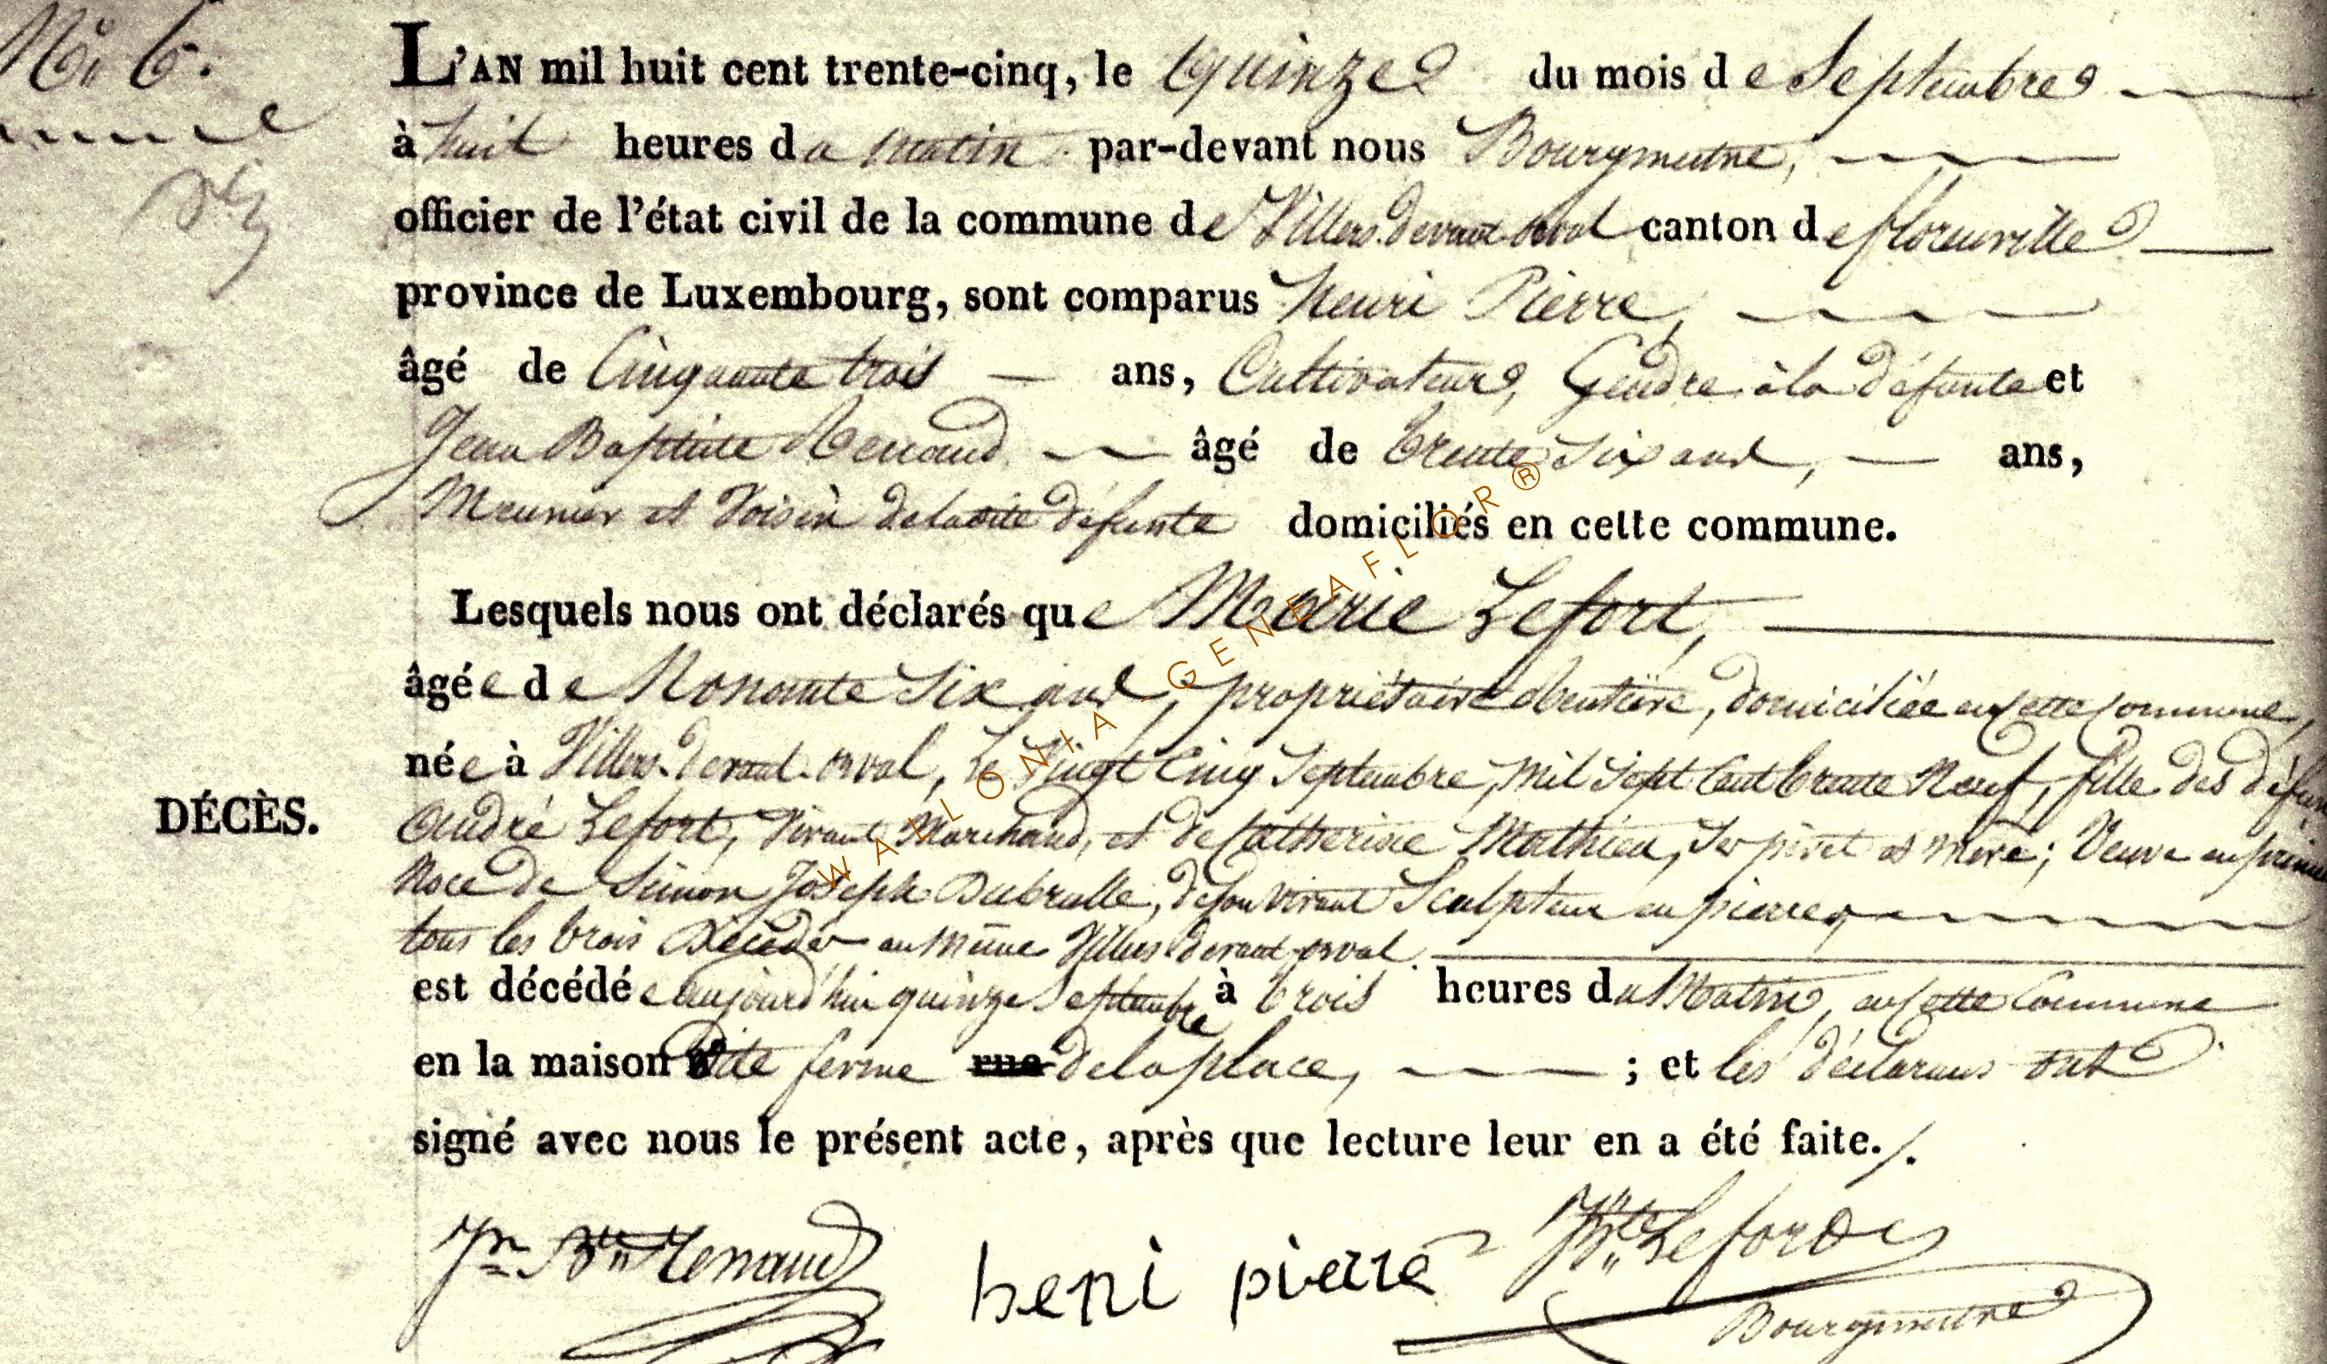 No. 6.
L'AN mil huit cent trente-cinq, le Quinze du mois de Septembre
à huit heures du matin par-devant nous Bourgmestre,
officier de l'état civil de la commune de Villers devant orval canton de florenville
province de Luxembourg, sont comparus henri Pierre,
âgé de Cinquante trois ans, Cultivateur, Gendre à la défunte et
Jean Baptiste Renaud âgé de trente Six ans, ans,
Meunier et Voisin de la dite défunte domiciliés en cette commune.
Lesquels nous ont déclarés que Marie Lefort,
âgée de Nonante Six ans, propriétaire Rentière, domiciliée en cette Commune,
née à Villers-devant-orval, le Vingt Cinq Septembre, mil Sept Cent trente Neuf, fille des défun
DÉCÈS.
André Lefort, Vivant Marchand, et de Catherine Mathieu, Ses pères et mère; Veuve en
Noce de Simon Joseph Dubrulle, de son vivant Sculpteur en pierre,
tous les trois Décédés au Même Villers devant orval.
est décédée aujourd'hui quinze Septembre à trois heures du Matin, en cette Commune
en la maison dite ferme rue de la place, ; et les déclarans ont
signé avec nous le présent acte, après que lecture leur en a été faite./.
Jn Bte Renaud henri pierre Lefort
Bourgmestre
WALLONIA-GENEAFLOR®